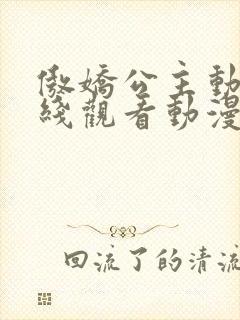 傲嬌公主動
綫觀看動漫
回流了的清流